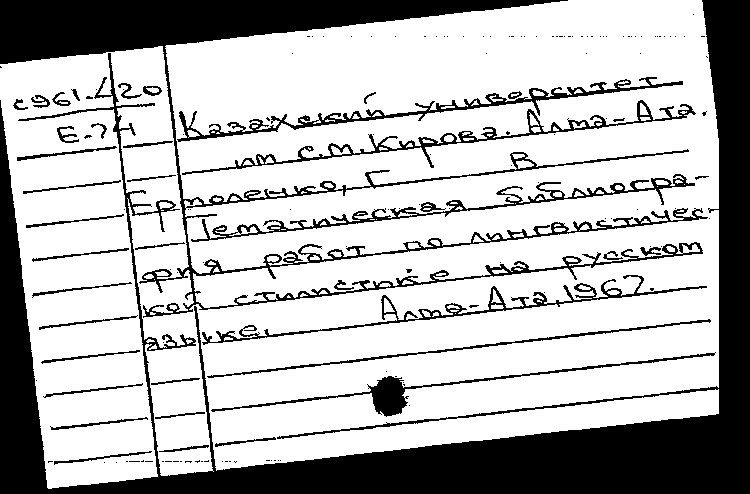 с961.420
Е.74
Казахский университет
им С.М.Кирова. Алма-Ата.
Ермоленко, Г В
Тематическая библиогра-
фия работ по лингвистичес-
кой стилистике на русском
языке. Алма-Ата, 1967.